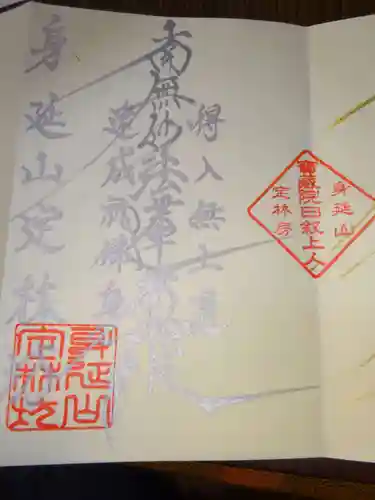 身延山
寶蔵院日叙上人
定林房
得入無上道
南無妙法蓮華經
速成就佛身
身延山定林
身延山
定林坊